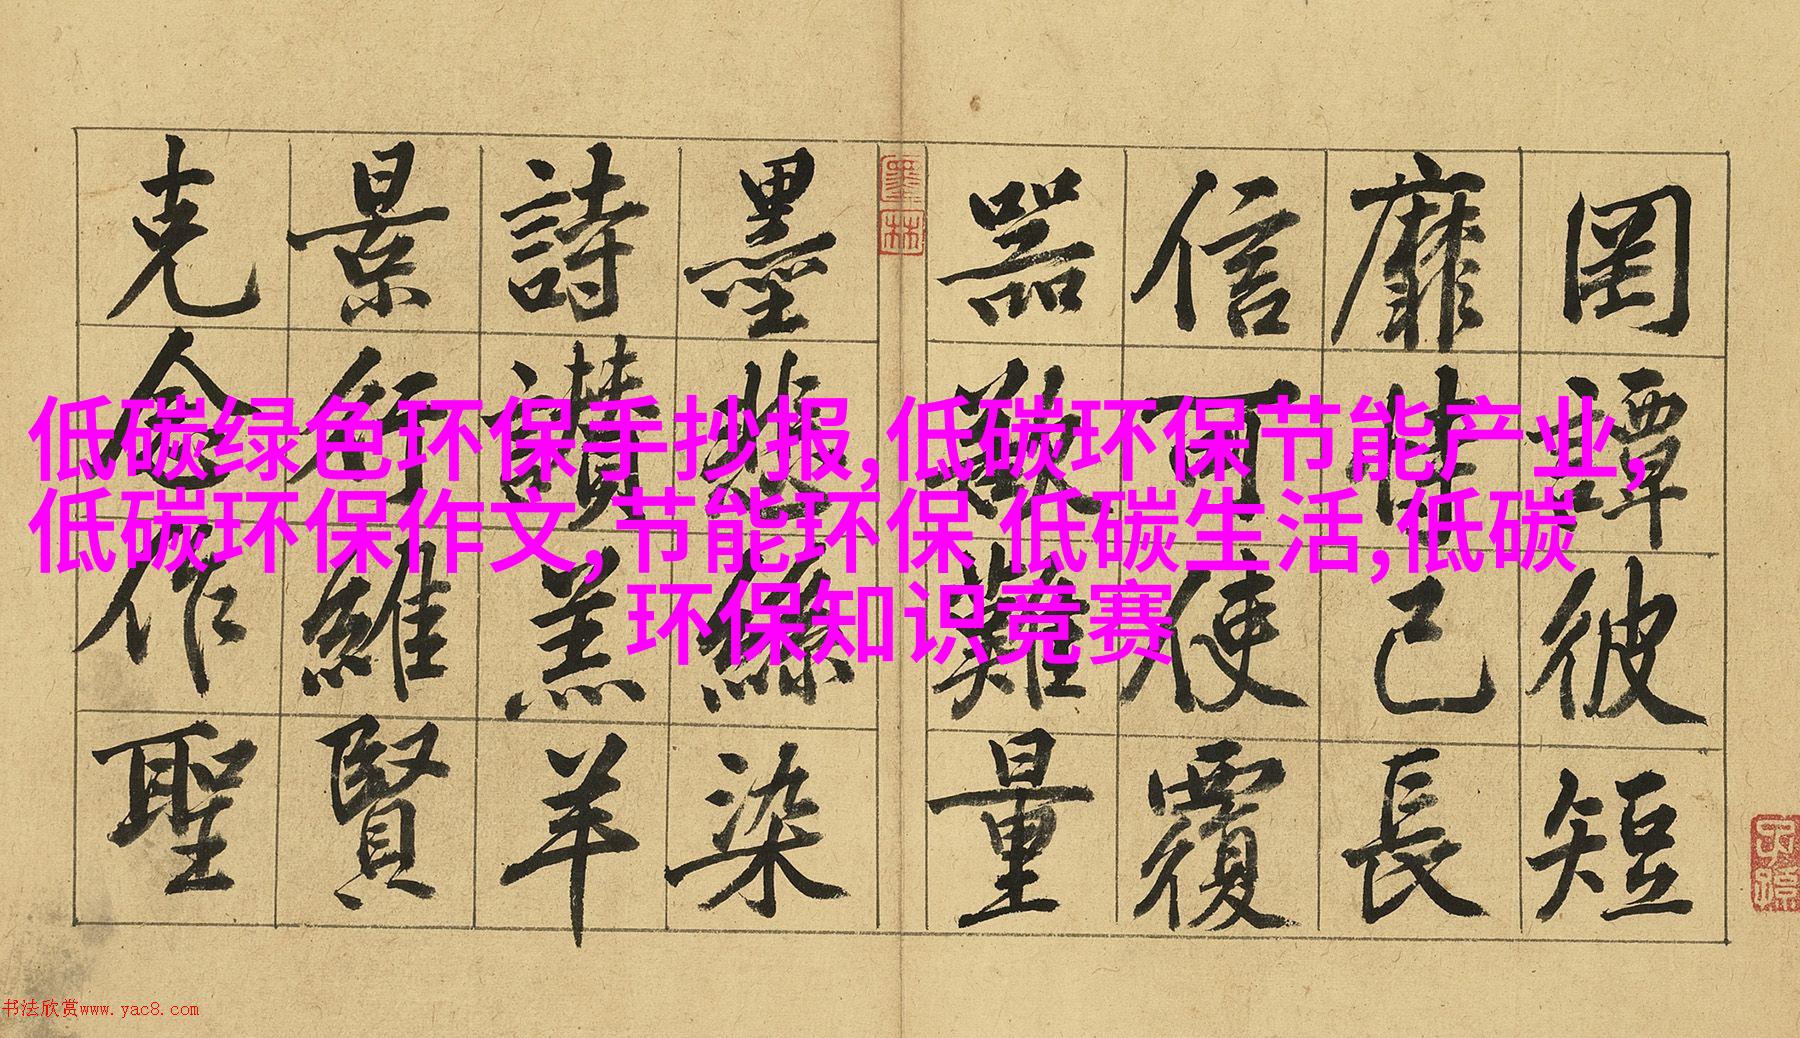 罔譚彼短
靡恃己長
信可使覆
器欲難量
墨悲絲染
詩讚羔羊
景行維賢
克念作聖
墨林
低碳绿色环保手抄报,低碳环保节能产业,
低碳环保作文,节能环保 低碳生活,低碳
环保知识竞赛
书法欣赏www.yac8.com